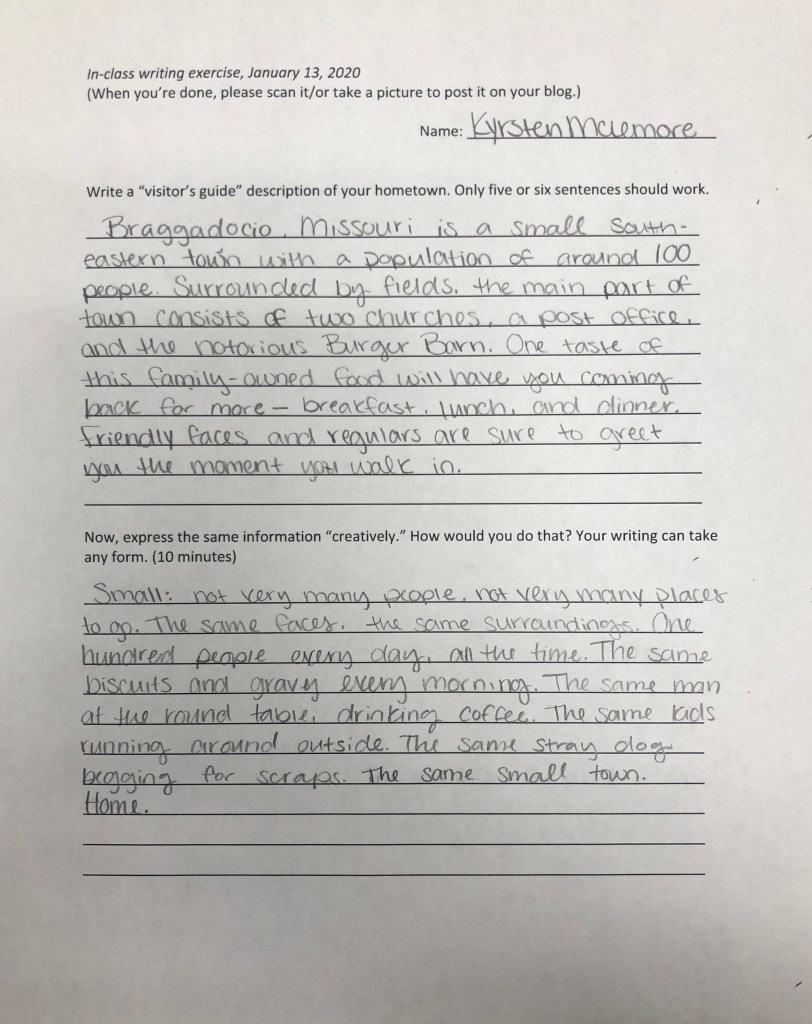 In-class writing exercise, January 13, 2020
(When you're done, please scan it/or take a picture to post it on your blog.)
Name: Kyrsten Mclemore
Write a “visitor's guide” description of your hometown. Only five or six sentences should work.
Braggadocio, Missouri is a small South-
eastern town with a population of around 100
people. Surrounded by fields, the main part of
town consists of two churches, a post office,
and the notorious Burger Barn. One taste of
this family-owned food will have you coming
back for more – breakfast, lunch, and dinner.
Friendly faces and regulars are sure to greet
you the moment you walk in.
Now, express the same information “creatively.” How would you do that? Your writing can take
any form. (10 minutes)
Small: not very many people, not very many places
to go. The same faces, the same surroundings. One
hundred people every day, all the time. The same
biscuits and gravy every morning. The same man
at the round table, drinking coffee. The same kids
running around outside. The same stray dog
begging for scraps. The same small town.
Home.